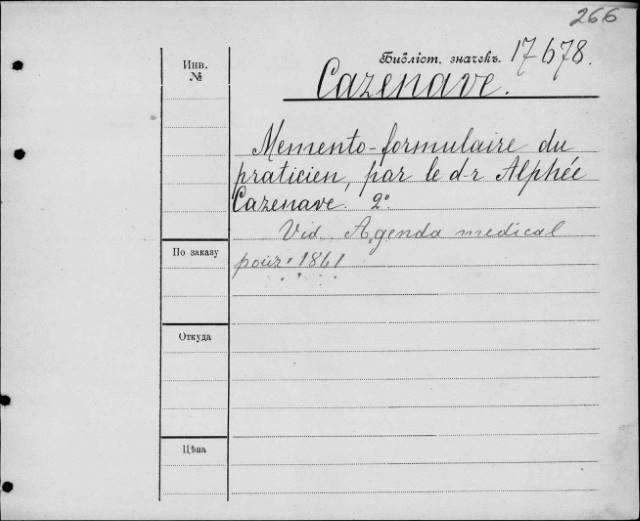 266
Инв.
№
Библіот. значекъ. 17678.
Cazenave.
Memento-formulaire du
praticien, par le d-r Alphée
Cazenave. 2°.
Vid. Agenda medical
По заказу
pour 1861
Откуда
Цѣна